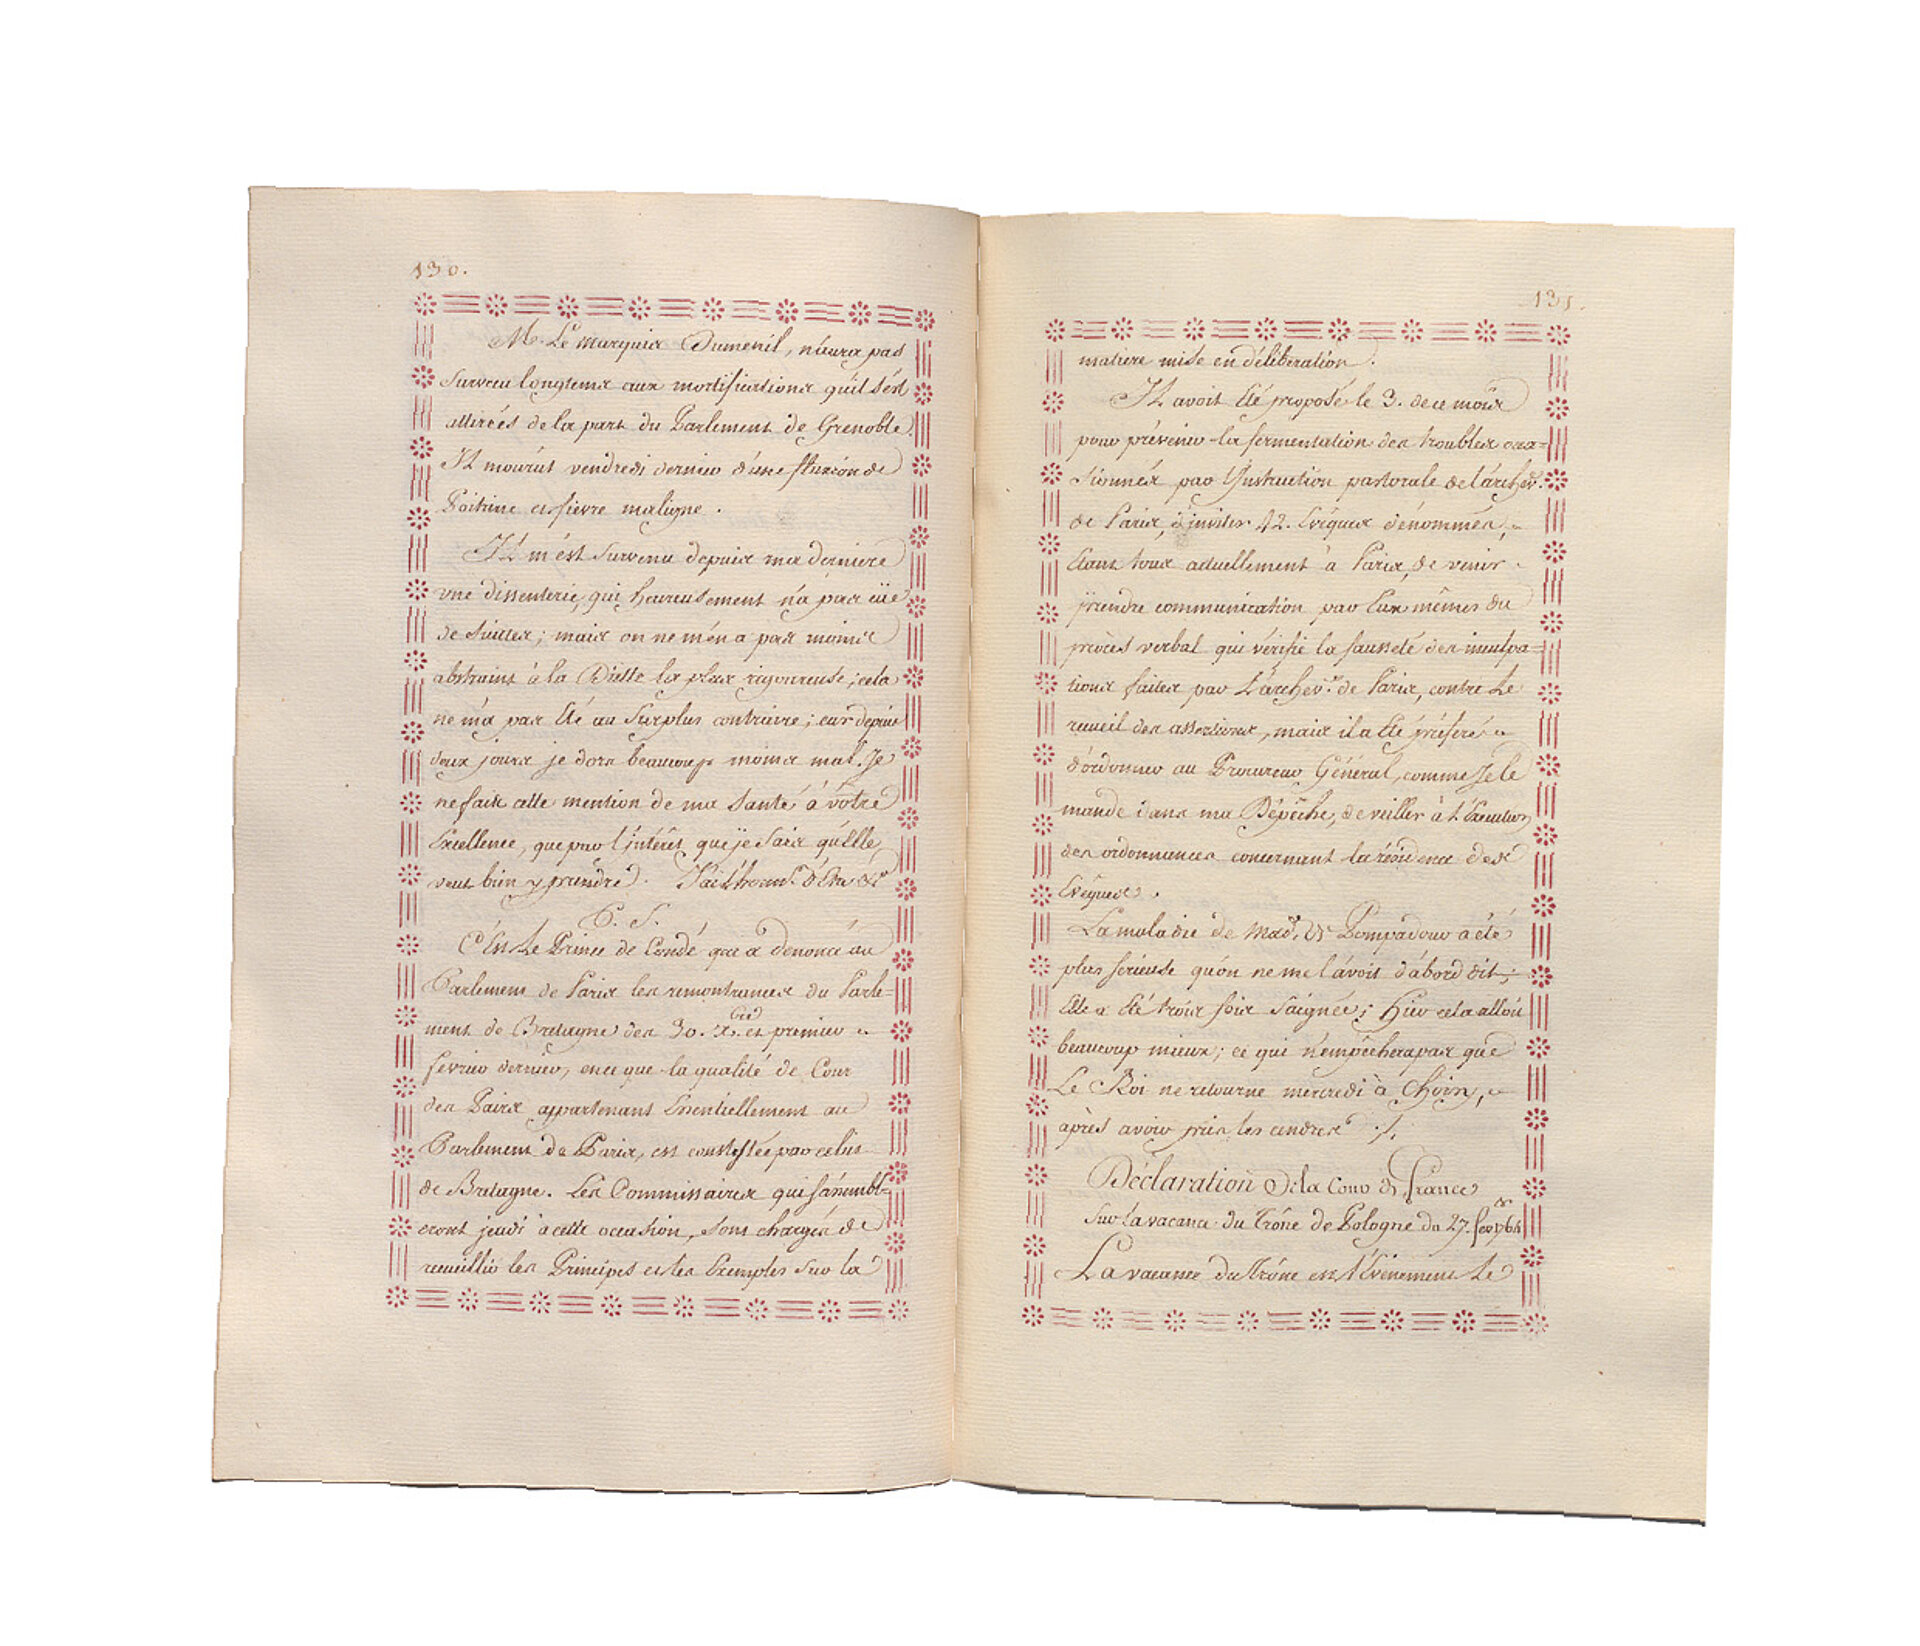 130.
M. Le marquis Dumenil, n'aura pas
survecu longtems aux mortifications qu'il s'est
attirées de la part du Parlement de Grenoble.
Il mourut vendredi dernier d'une fluxion de
Poitrine et fievre maligne.
Il m'est survenu depuis ma derniere
une dissenterie, qui heureusement n'a pas eüe
de suittes; mais on ne m'en a pas moins
abstraint à la Diette la plus rigoureuse; cela
ne m'a pas été au surplus contraire; car depuis
deux jours je dors beaucoup moins mal. Je
ne fais cette mention de ma santé à vôtre
Excellence, que par l'intérêt que je sais qu'Elle
veut bien y prendre. J'ai l'honn.r d'Etre &.a
P. S.
C'Est Le Prince de Condé qui a denoncé au
Parlement de Paris les remontrances du Parle=
ment de Bretagne des 30. et premier
fevrier dernier, en ce que la qualité de Cour
des Pairs appartenant Essentiellement au
Parlement de Paris, est contestée par celui
de Bretagne. Les Commissaires qui s'assembl-
eront jeudi à cette occasion, sont chargés de
recueillir les Principes et les Exemples sur la
131.
matiere mise en déliberation.
Il avoit Eté proposé le 3. de ce mois
pour prévenir la fermentation des troubles occa=
sionnés par l'Instruction pastorale de l'archev.
de Paris, d'inviter 12. Evêques dénommés,
étant tous actuellement à Paris, de venir
prendre communication par Eux mêmes du
procès verbal qui vérifie la fausseté des inculpa=
tions faites par L'archev. de Paris, contre Le
recueil des assertions, mais il a Eté préféré
d'ordonner au Procureur Général, comme Je le
mande dans ma Dépêche, de veiller à l'Execution
des ordonnances concernant la résidence des
Evêques.
La maladie de Mad. de Pompadour a été
plus serieuse qu'on ne me l'avoit d'abord dit;
Elle a Eté trois fois saignée; Hier cela alloit
beaucoup mieux; ce qui n'empêchera pas que
Le Roi ne retourne mercredi à Choisy,
après avoir pris les cendres ./.
Déclaration de la Cour de France
sur la vacance du Trône de Pologne du 27. fev. 1764
La vacance du Trône est l'Evenement Le